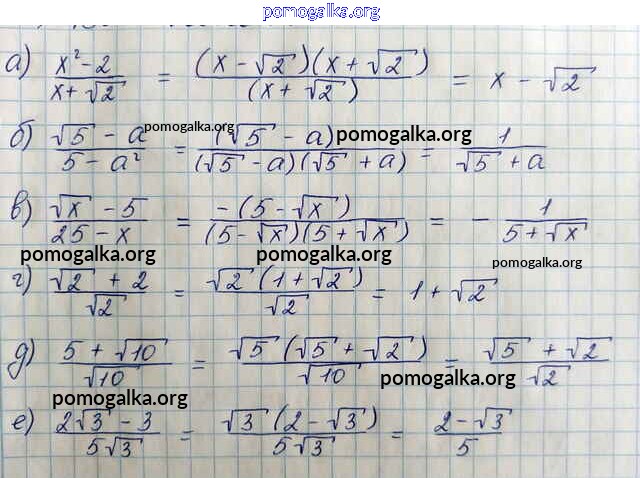 pomogalka.org
а) (x² − 2)/(x + √2) = ((x − √2)(x + √2))/((x + √2)) = x − √2
б) (√5 − a)/(5 − a²) = ((√5 − a))/((√5 − a)(√5 + a)) = 1/(√5 + a)
pomogalka.org pomogalka.org
в) (√x − 5)/(25 − x) = (−(5 − √x))/((5 − √x)(5 + √x)) = − 1/(5 + √x)
pomogalka.org pomogalka.org pomogalka.org
г) (√2 + 2)/√2 = (√2 (1 + √2))/√2 = 1 + √2
д) (5 + √10)/√10 = (√5 (√5 + √2))/√10 = (√5 + √2)/√2
pomogalka.org pomogalka.org
е) (2√3 − 3)/(5√3) = (√3 (2 − √3))/(5√3) = (2 − √3)/5